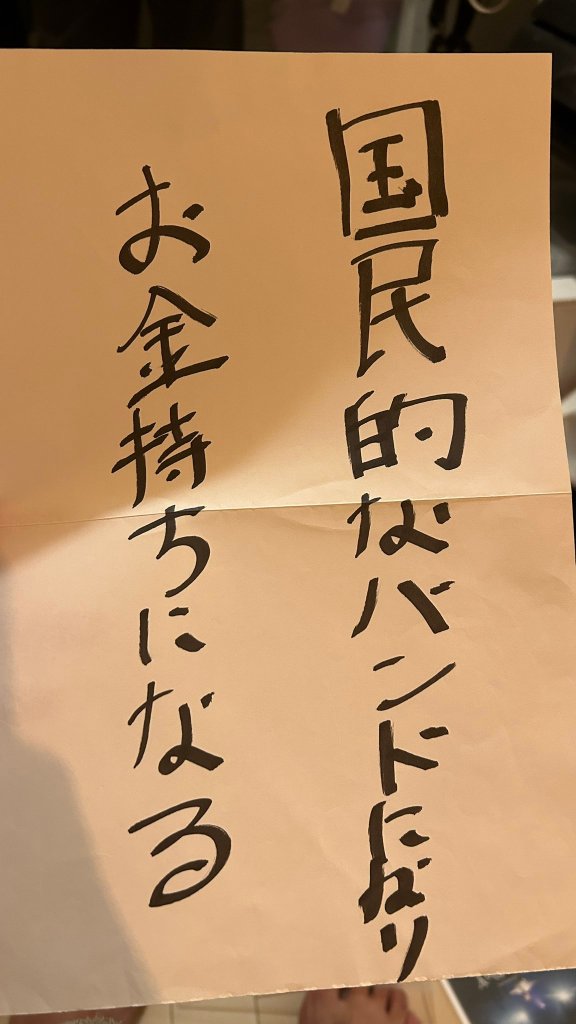 国民的なバンドになり
お金持ちになる